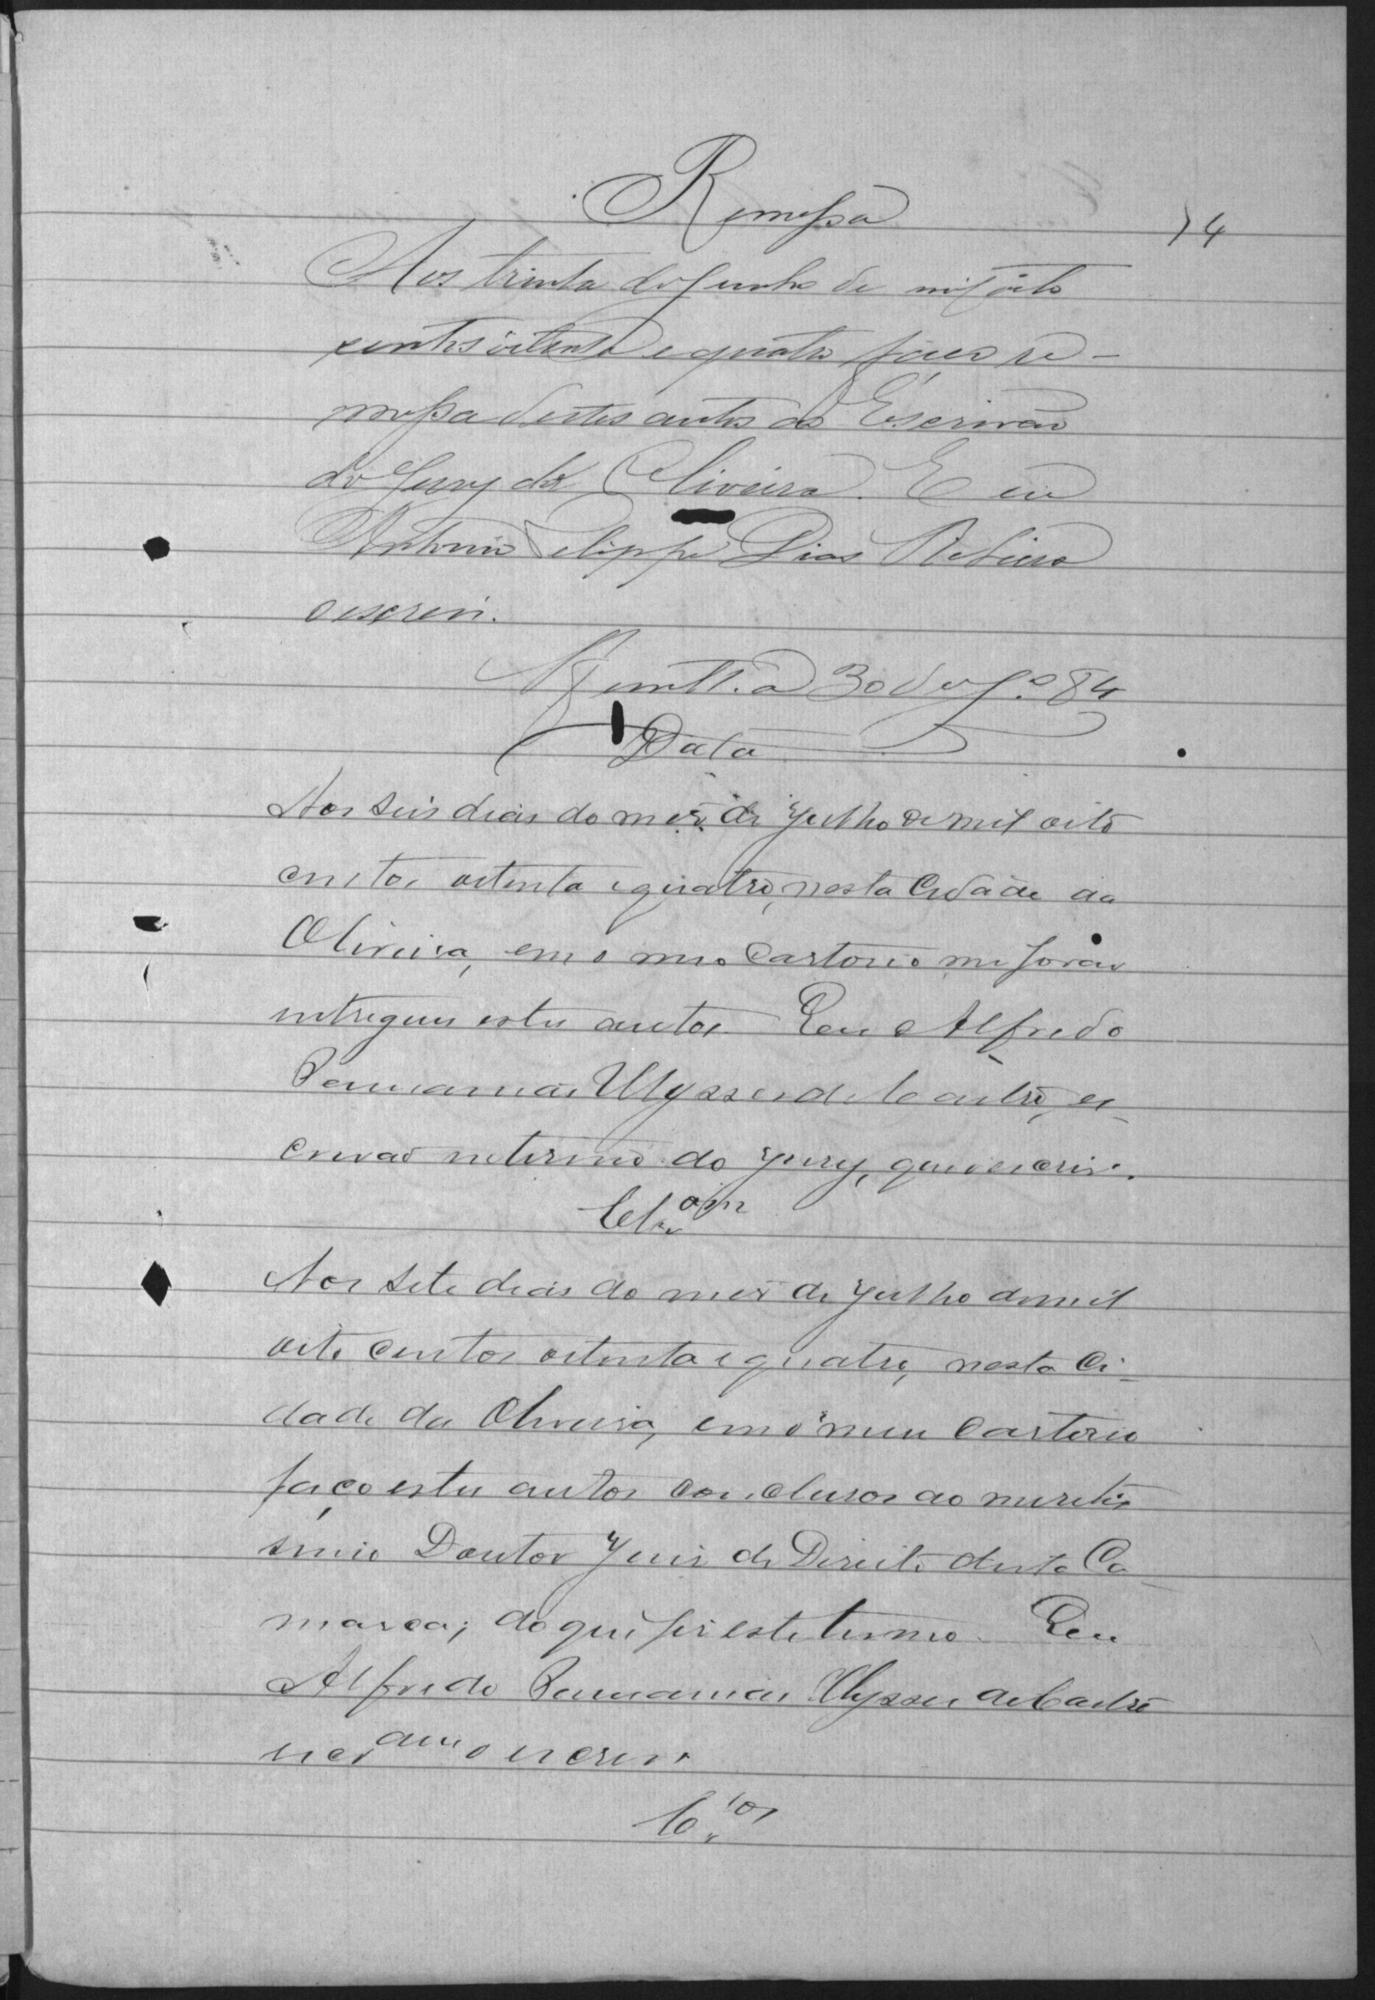 Remessa
74
Aos trinta de Junho de mil oito
centos oitenta e quatro faço re-
messa destes autos ao Escrivão
do Jury da Oliveira. E eu
Antonio Felippe Dias Ribeiro
o escrevi.
30 de 84
Data
Aos seis dias do mez de Julho de mil oito
centos oitenta e quatro, nesta Cidade da
Oliveira, em o meo Cartorio me forão
entregues estes autos Eu Alfredo
Ulysses de Castro, es-
crivão interino do Jury, que o escrevi.
Cl.am
Aos sete dias do mez de Julho de mil
oito centos oitenta e quatro, nesta Ci-
dade da Oliveira, em o meu Cartorio
faço estes autos conclusos ao meretis
simo Doutor Juiz de Direito desta Co
marca; do que fiz este termo. Eu
Alfredo Ulysses de Castro
o escrevi
C.los